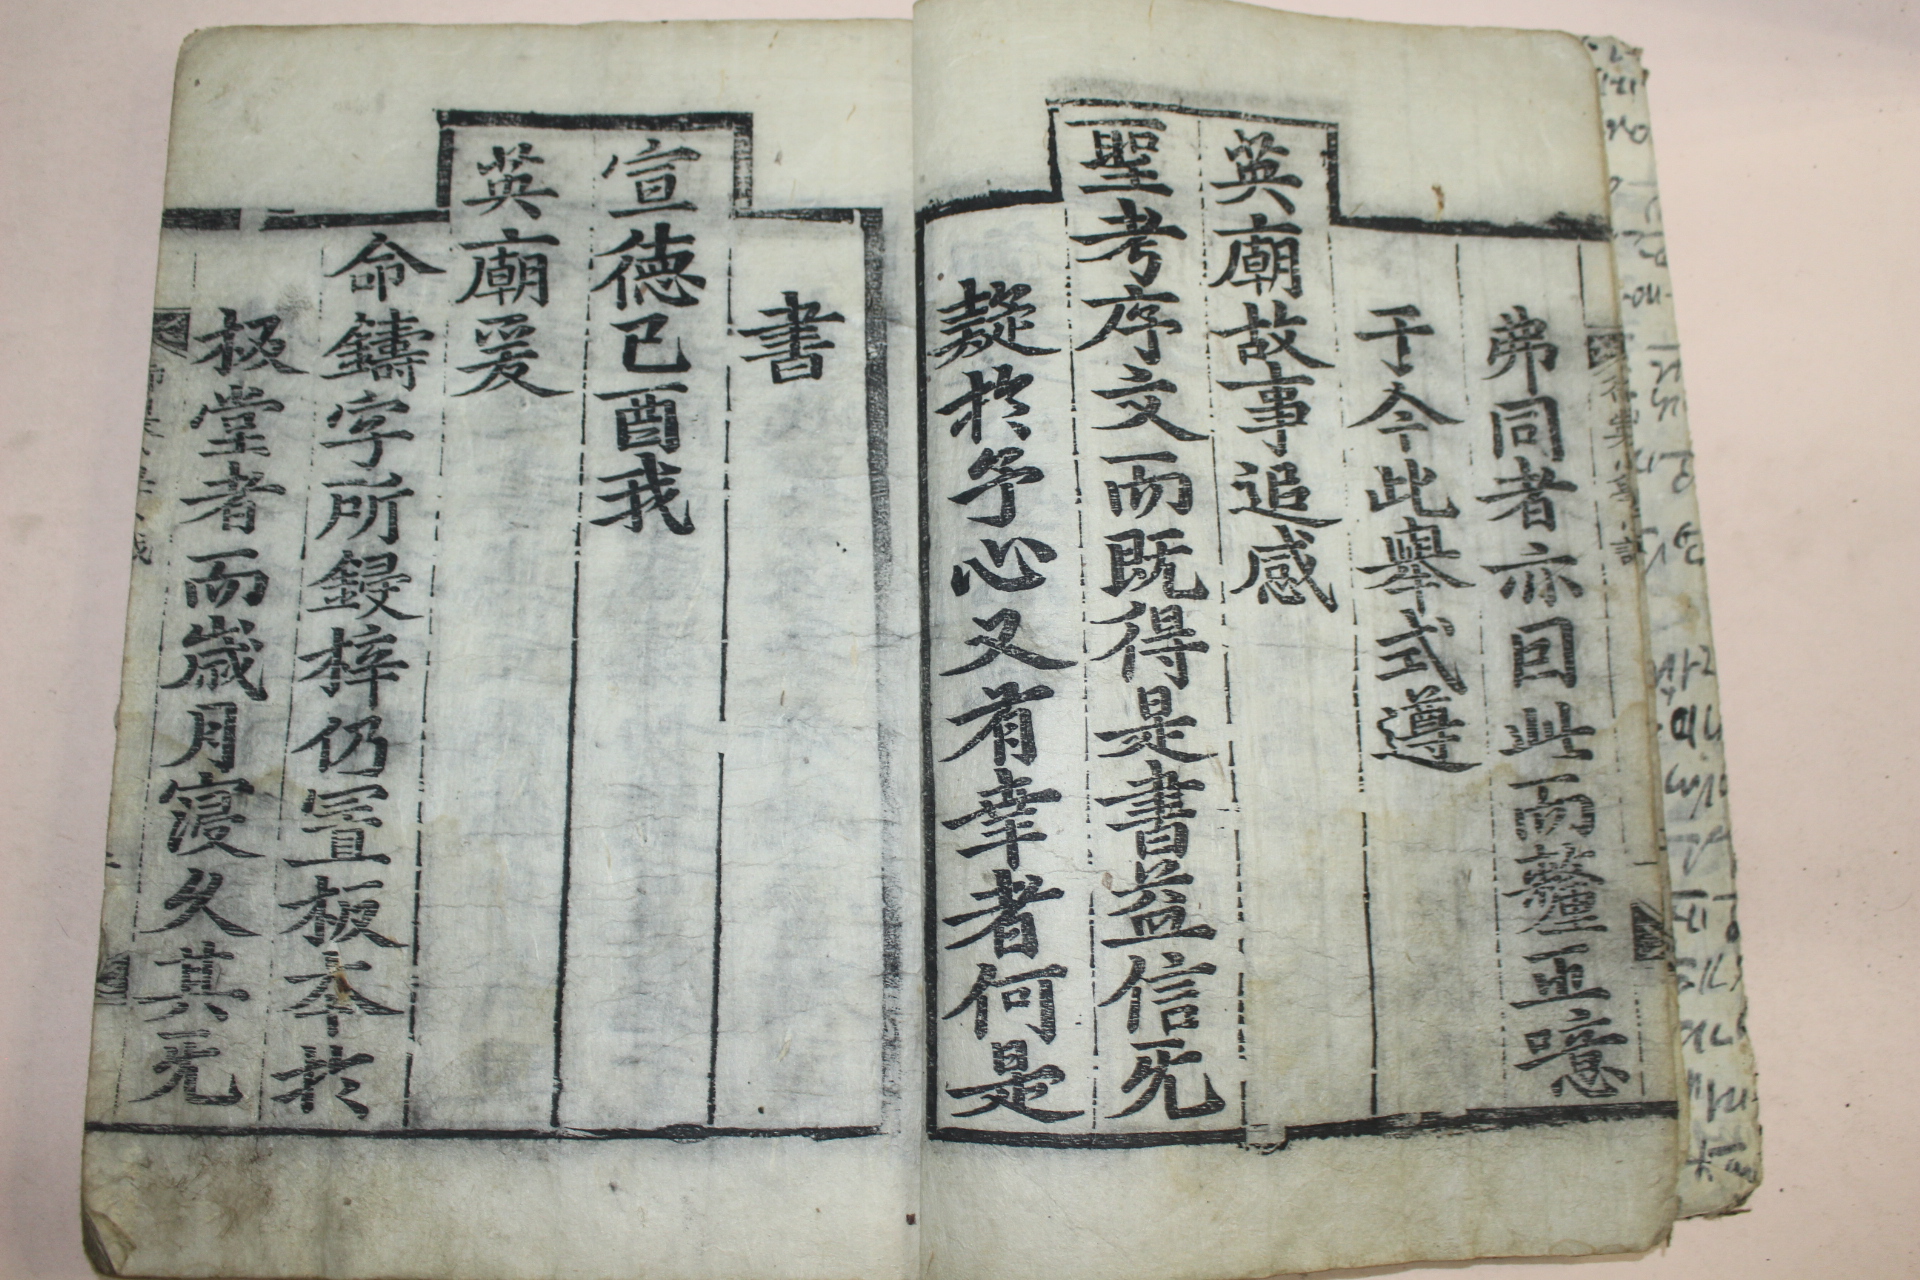 弗同者亦因此而釐正噫
于今此擧式遵
英廟故事追感
聖考序文而既得是書益信无
疑於予心又有幸者何是
書
宣德己酉我
英廟爰
命鑄字所鋟梓仍置板本於
極堂者而歲月寖久其无